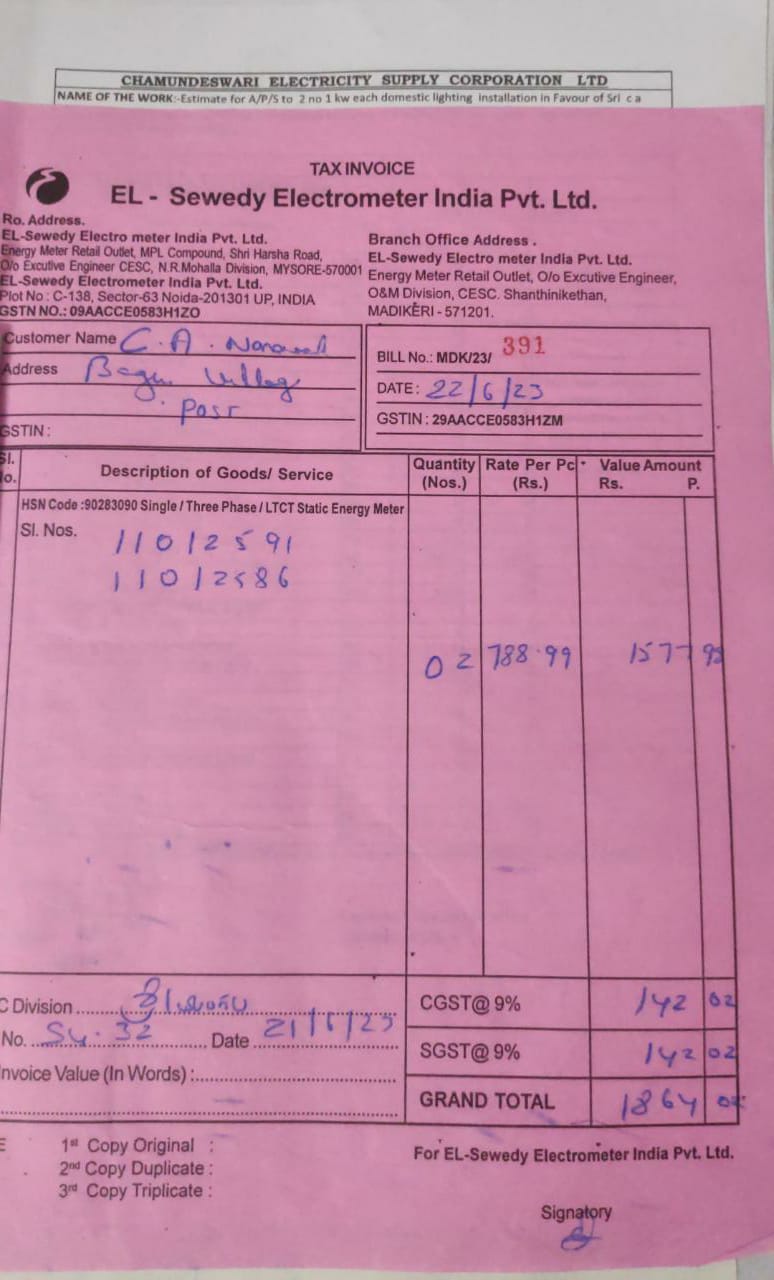 CHAMUNDESWARI ELECTRICITY SUPPLY CORPORATION LTD
NAME OF THE WORK:-Estimate for A/P/S to 2 no 1 kw each domestic lighting installation in Favour of Sri c a
TAX INVOICE
EL - Sewedy Electrometer India Pvt. Ltd.
Ro. Address.
EL-Sewedy Electro meter India Pvt. Ltd.
Energy Meter Retail Outlet, MPL Compound, Shri Harsha Road,
O/o Excutive Engineer CESC, N.R.Mohalla Division, MYSORE-570001
EL-Sewedy Electrometer India Pvt. Ltd.
Plot No : C-138, Sector-63 Noida-201301 UP, INDIA
GSTN NO.: 09AACCE0583H1ZO
Branch Office Address .
EL-Sewedy Electro meter India Pvt. Ltd.
Energy Meter Retail Outlet, O/o Excutive Engineer,
O&M Division, CESC. Shanthinikethan,
MADIKERI - 571201.
Customer Name C. A.
Address Village
Post
GSTIN :
BILL No.: MDK/23/ 391
DATE : 22/6/23
GSTIN : 29AACCE0583H1ZM
Sl. No. Description of Goods/ Service Quantity (Nos.) Rate Per Pc (Rs.) Value Amount Rs. P.
HSN Code :90283090 Single / Three Phase / LTCT Static Energy Meter
Sl. Nos. 11012591
11012586
02 788.99 1577
C Division
No. 32 Date 21/6/23
Invoice Value (In Words) :
CGST@ 9% 142 02
SGST@ 9% 142 02
GRAND TOTAL 1864 02
1st Copy Original :
2nd Copy Duplicate :
3rd Copy Triplicate :
For EL-Sewedy Electrometer India Pvt. Ltd.
Signatory